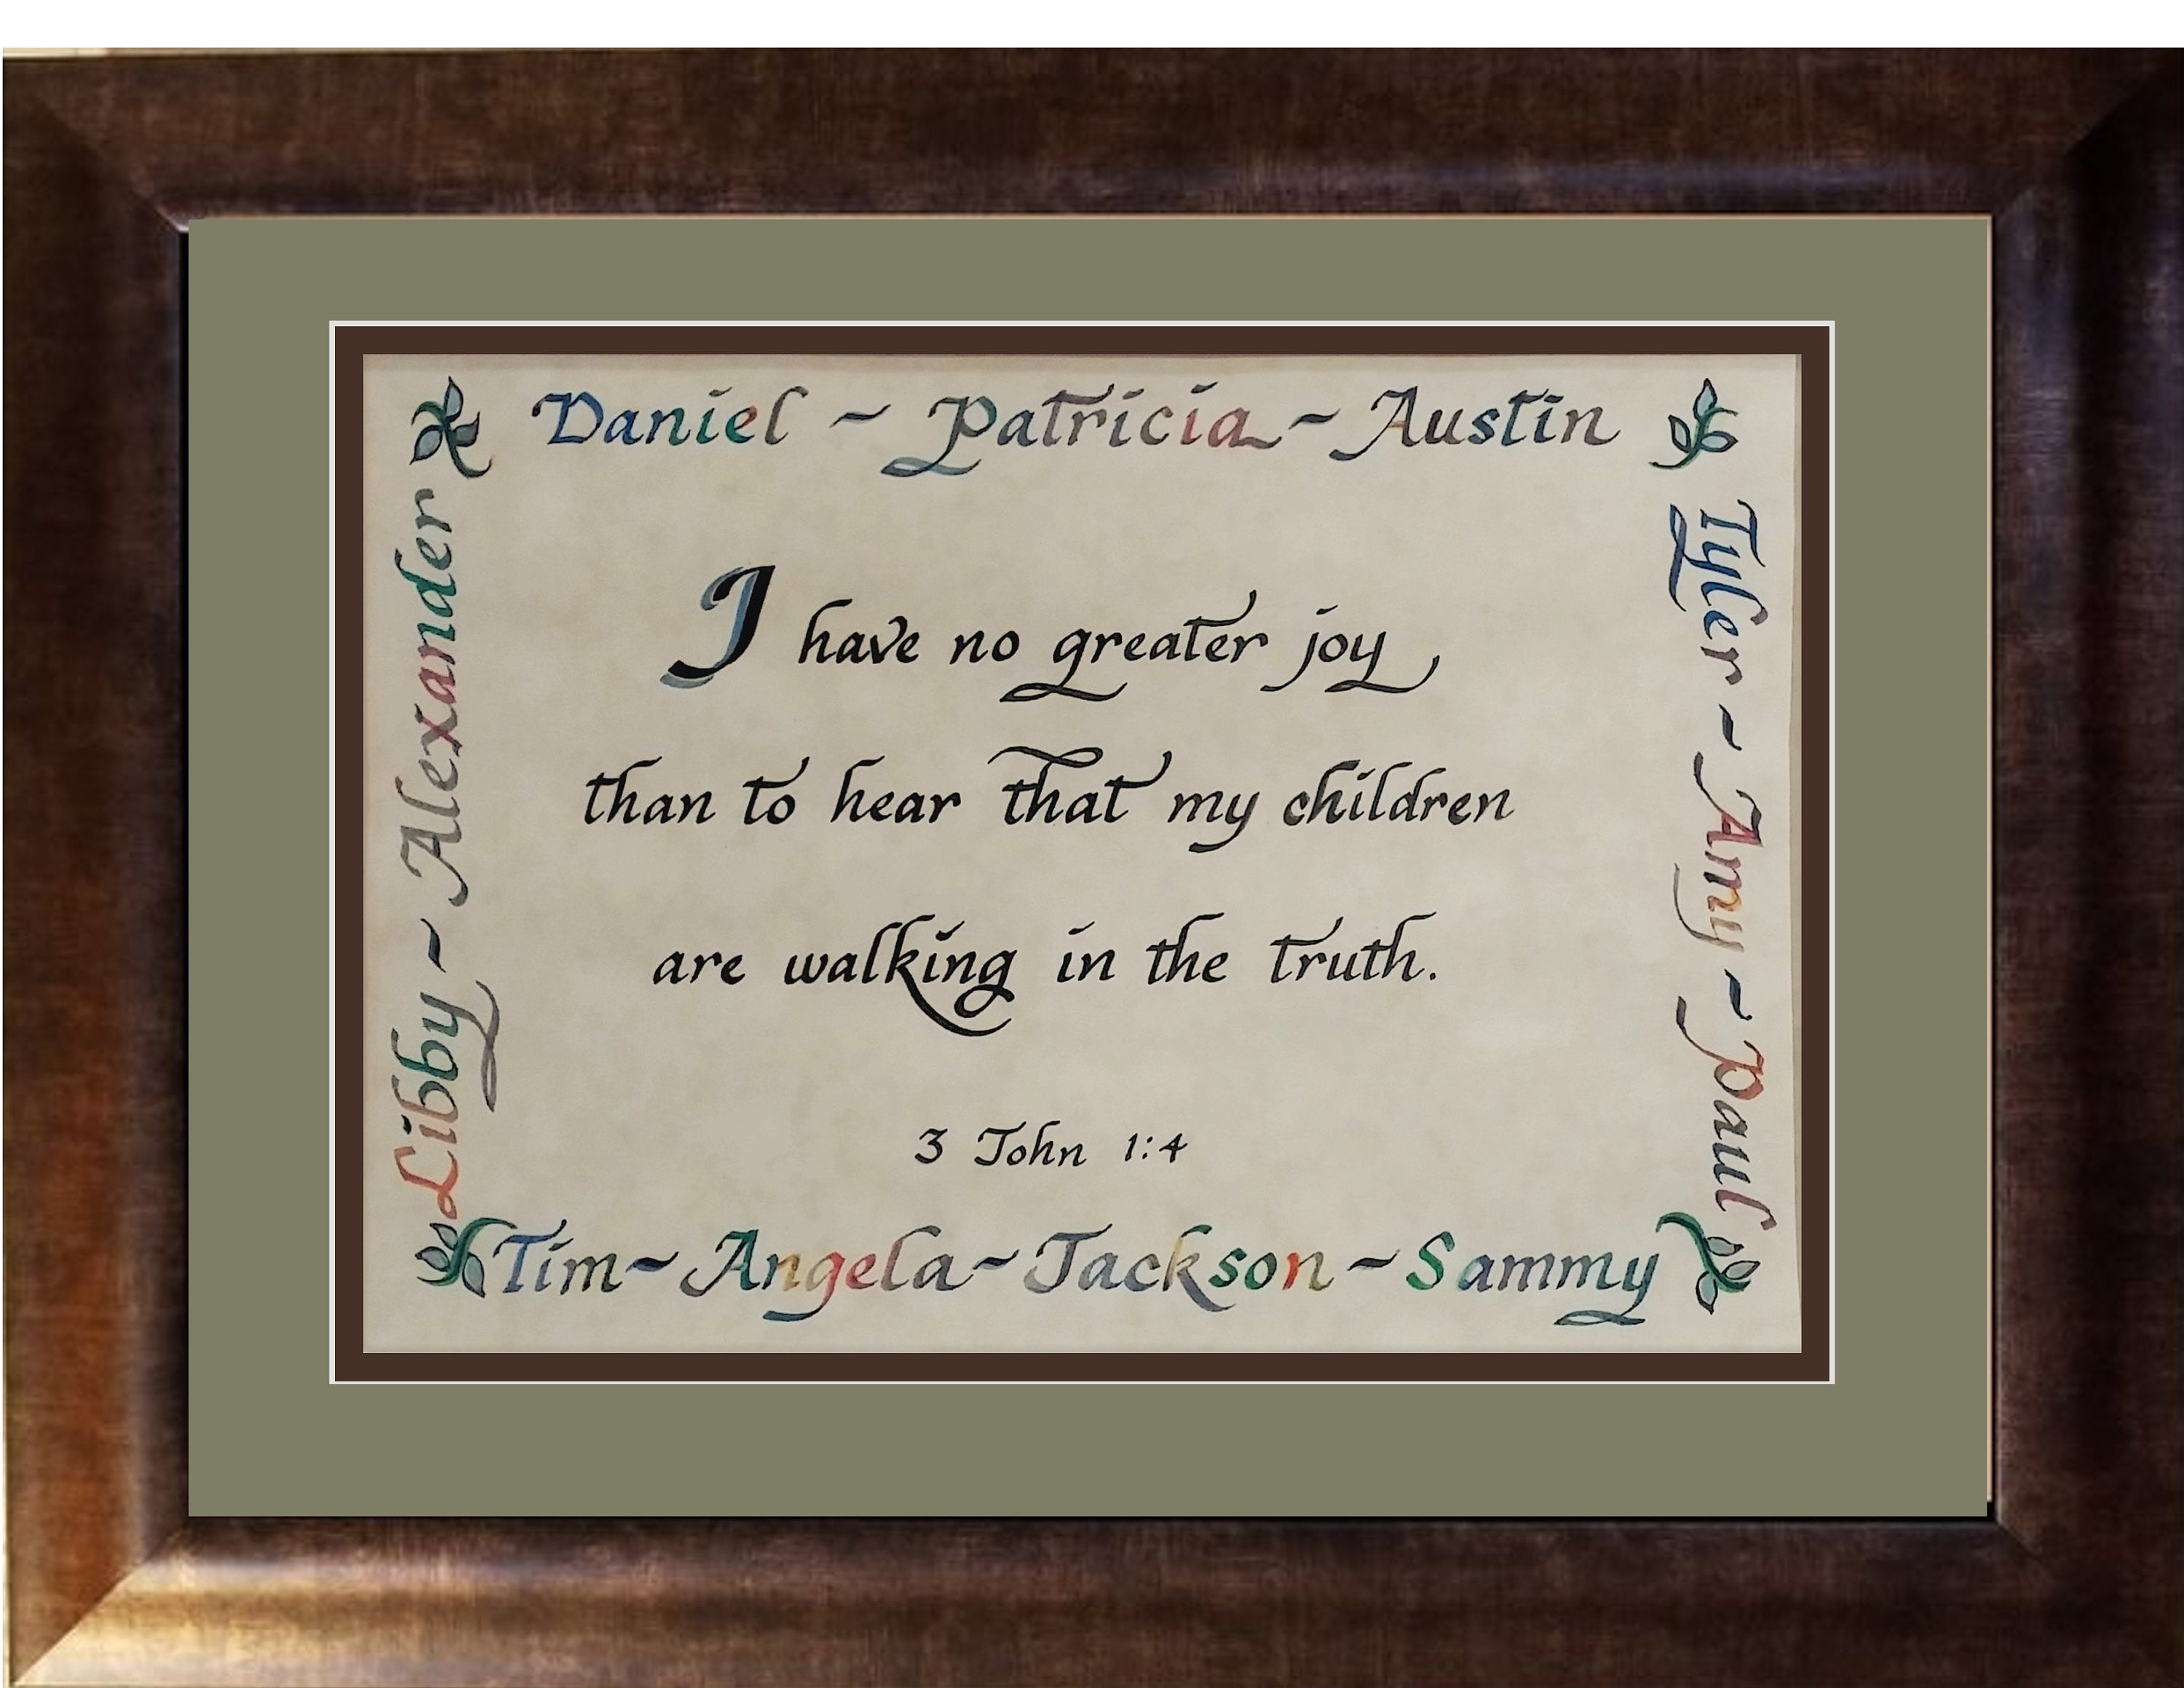 Daniel ~ Patricia ~ Austin
Tyler ~ Amy ~ Paul
I have no greater joy
than to hear that my children
are walking in the truth.
3 John 1:4
Libby ~ Alexander
Tim ~ Angela ~ Jackson ~ Sammy